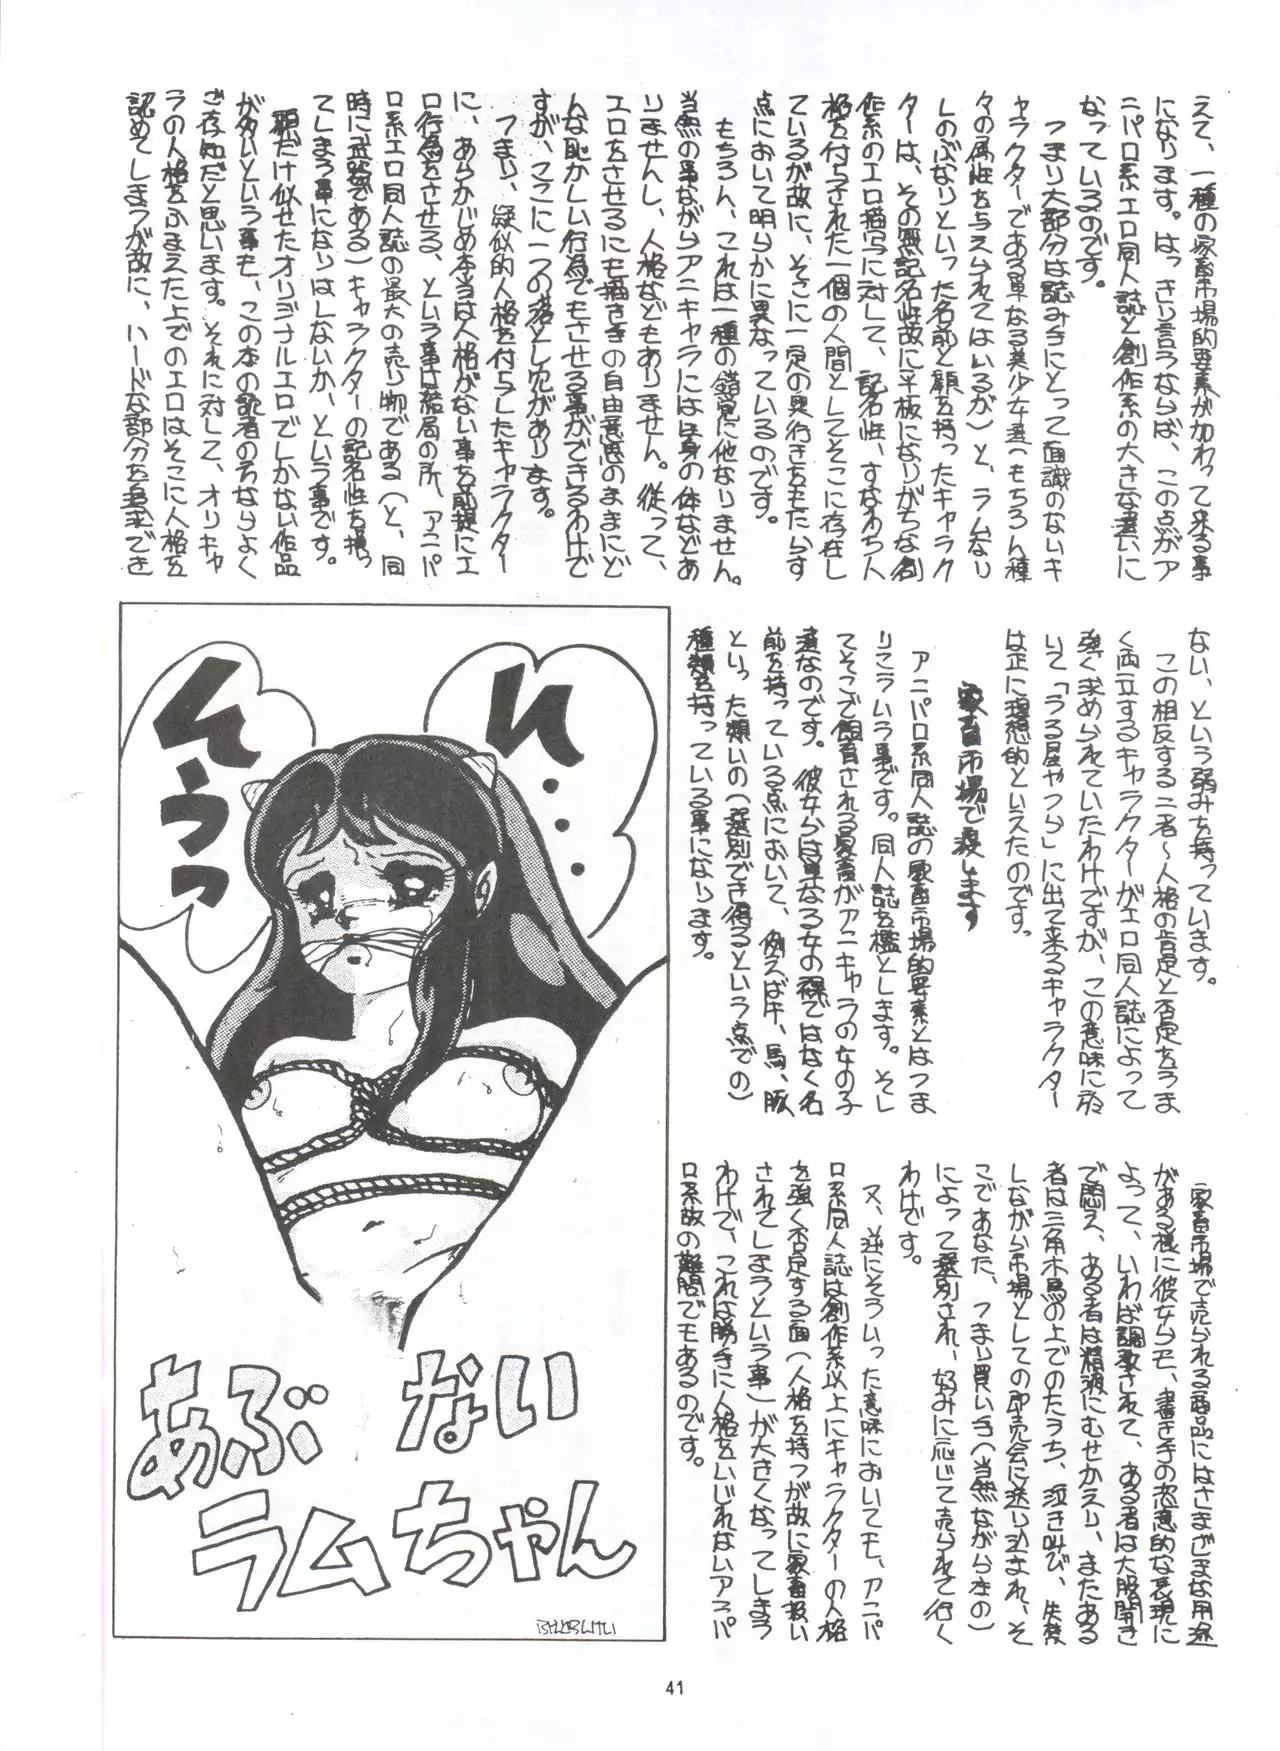 えて、一種の家畜市場的要素が加わって来る事
になります。はっきり言うならば、この点がア
ニパロ系エロ同人誌と創作系の大きな違いに
なっているのです。
つまり大部分は読み手にとって面識のないキ
ャラクターである単なる美少女達(もちろん種
々の属性を与えられてはいるが)と、ラムなり
しのぶなりといった名前と顔を持ったキャラク
ターは、その無記名性故に平板になりがちな創
作系のエロ描写に対して、記名性、すなわち人
格を付与された一個の人間としてそこに存在し
ているが故に、そこに一定の奥行きをもたらす
点において明らかに異なっているのです。
もちろん、これは一種の錯覚に他なりません。
当然の事ながらアニキャラには生身の体などあ
りませんし、人格などもありません。従って、
エロをさせるにも描き手の自由意思のままにど
んな恥かしい行為でもさせる事ができるわけで
すが、ここに一つの落とし穴があります。
つまり、疑似的人格を付与したキャラクター
に、あらかじめ本当は人格がない事を前提にエ
ロ行為をさせる、という事は結局の所、アニパ
ロ系エロ同人誌の最大の売り物である(と、同
時に武器である)キャラクターの記名性を損っ
てしまう事になりはしないか、という事です。
顔だけ似せたオリジナルエロでしかない作品
が多いという事も、この本の読者の方ならよく
ご存知だと思います。それに対して、オリキャ
ラの人格をふまえた上でのエロはそこに人格を
認めてしまうが故に、ハードな部分を追求でき
ない、という弱みを持っています。
この相反する二者~人格の肯定と否定をうま
く両立するキャラクターがエロ同人誌によって
強く求められていたわけですが、この意味に於
いて「うる星やつら」に出て来るキャラクター
は正に理想的といえたのです。
家畜市場で殺します
アニパロ系同人誌の家畜市場的要素とはつま
りこういう事です。同人誌を檻とします。そし
てそこで飼育される家畜がアニキャラの女の子
達なのです。彼女らは単なる女の裸ではなく名
前を持っている点において、例えば牛、馬、豚
といった類いの(選別でき得るという点での)
種類を持っている事になります。
家畜市場で売られる商品にはさまざまな用途
がある様に彼女らも、書き手の恣意的な表現に
よって、いわば調教されて、ある者は大股開き
で悶え、ある者は精液にむせかえり、またある
者は三角木馬の上でのたうち、泣き叫び、失禁
しながら市場としての即売会に送り込まれ、そ
こであなた、つまり買い手(当然ながらきの)
によって選別され、好みに応じて売られて行く
わけです。
又、逆にそういった意味においても、アニパ
ロ系同人誌は創作系以上にキャラクターの人格
を強く否定する面(人格を持つが故に家畜扱い
されてしまうという事)が大きくなってしまう
わけで、これは勝手に人格をいじれないアニパ
ロ系故の難問でもあるのです。
い…
んうっ
あぶない
ラムちゃん
41